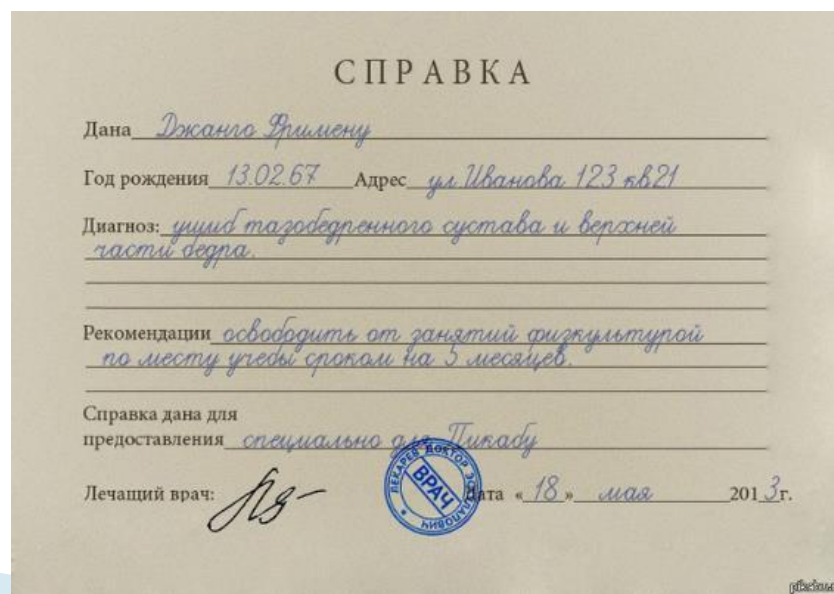 СПРАВКА
Дана Джанго Фримену
Год рождения 13.02.67 Адрес ул Иванова 123 кв21
Диагноз: ушиб тазобедренного сустава и верхней
части бедра.
Рекомендации освободить от занятий физкультурой
по месту учебы сроком на 5 месяцев.
Справка дана для
предоставления специально для Пикабу
Лечащий врач:
ЛЕКАРЕВ ДОКТОР
ВРАЧ
Дата «18» мая 2013г.